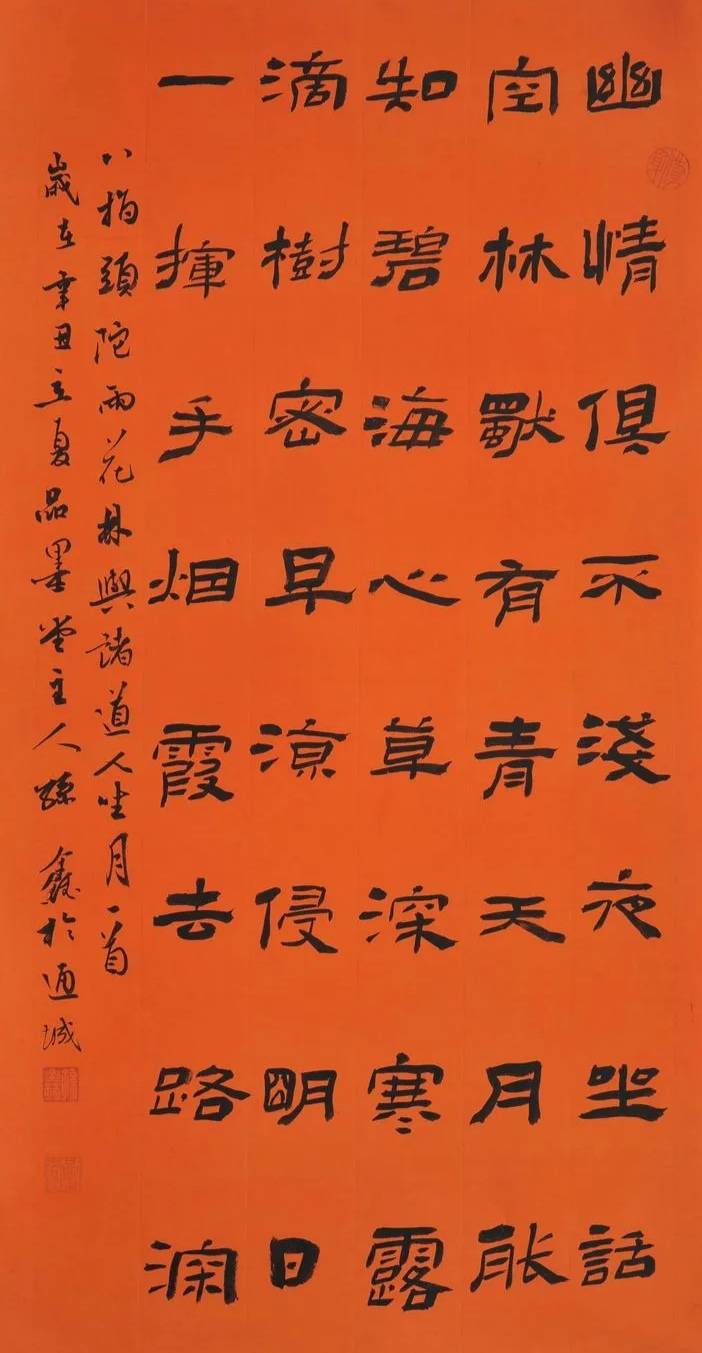 幽情俱不淺夜坐話
空林獨有青天月能
知碧海心草深寒露
滴樹密早涼侵明日
一揮手烟霞去路
八指頭陀雨花林與諸道人坐月一首
歲在辛丑立夏品墨堂主人孫鑫於通城